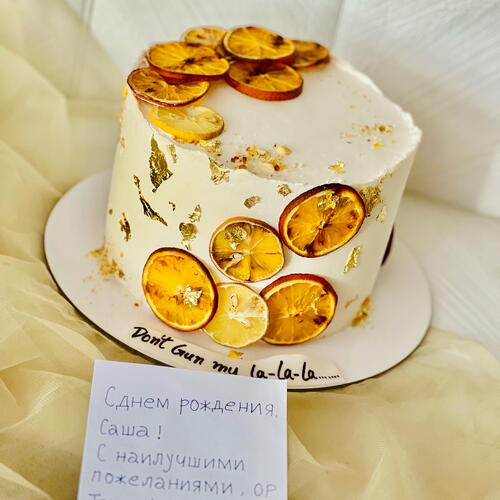 Don't Gun my la-la-la......
Сднем рождения,
Саша!
С наилучшими
пожеланиями, ор